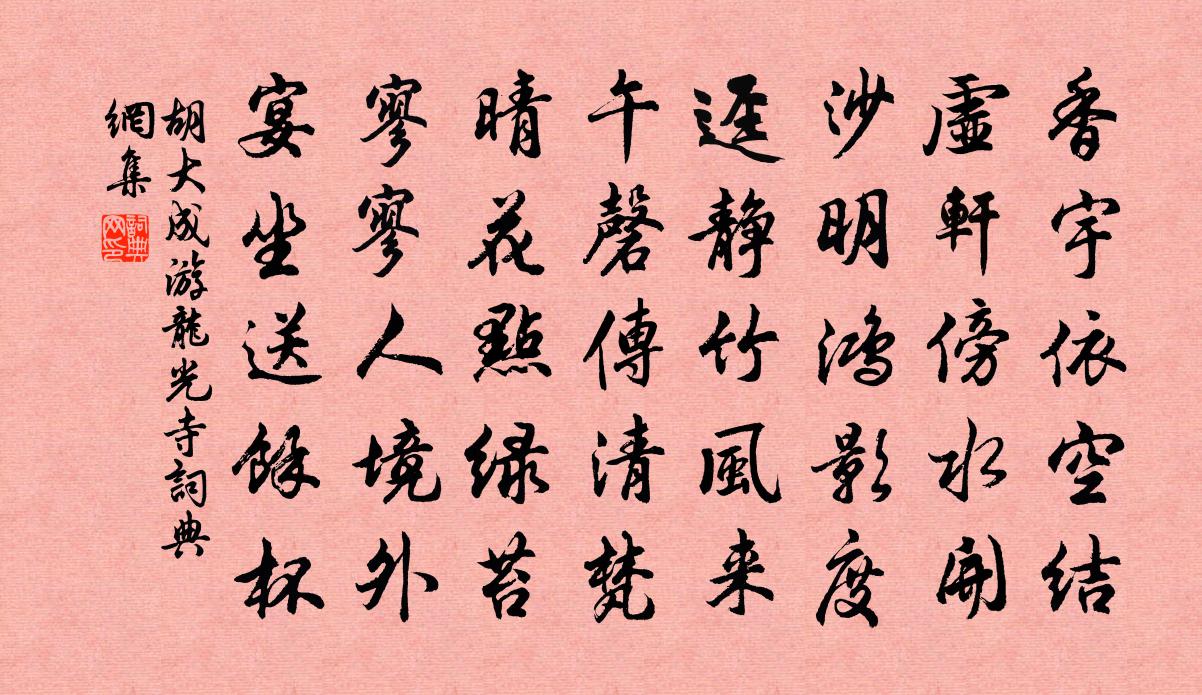 香宇依空结
虛軒傍水開
沙明鸿影度
逕靜竹風来
午磬傳清梵
晴花點绿苔
寥寥人境外
宴坐送餘杯
胡大成游龍光寺詞典
網集
詞典網印